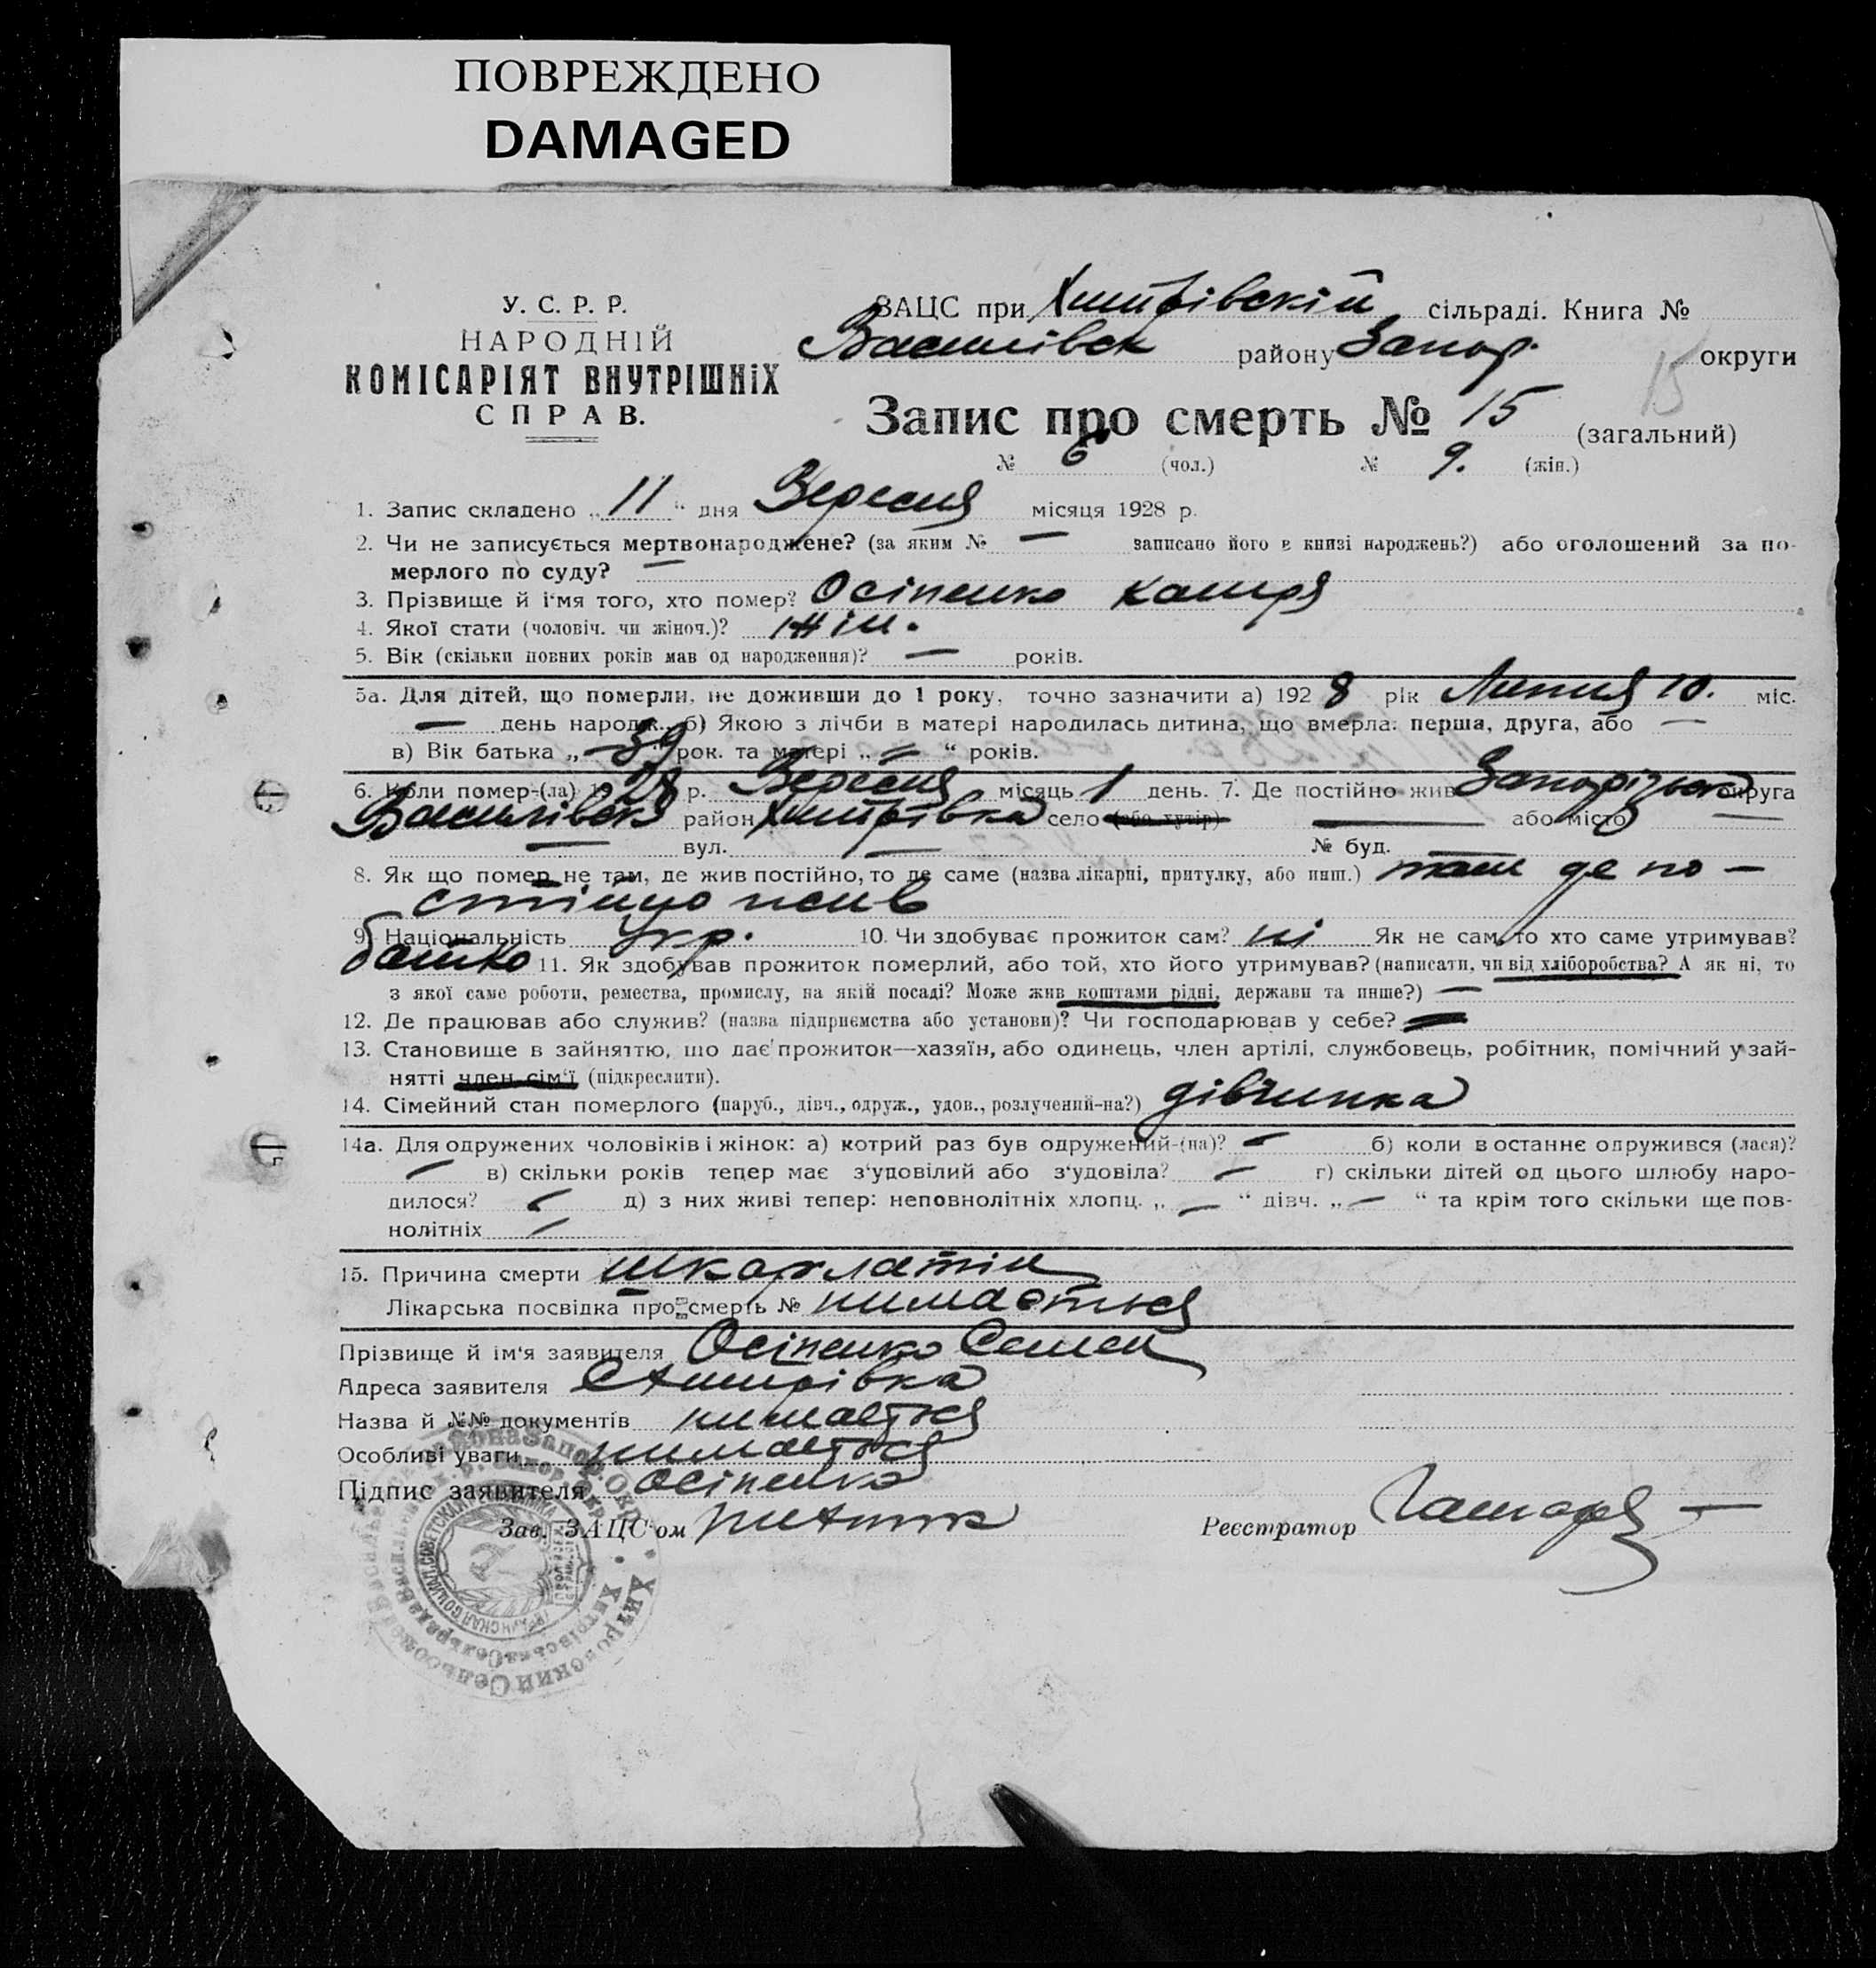 ПОВРЕЖДЕНО
DAMAGED
У. С. Р. Р.
НАРОДНІЙ
КОМІСАРІЯТ ВНУТРІШНІХ
СПРАВ.
ЗАЦС при Хитрівскій сільраді. Книга №
Василівск району Запор. округи
15
Запис про смерть № 15 (загальний)
№ 6 (чол.) № 9. (жін.)
1. Запис складено „ 11 " дня Вересня місяця 1928 р.
2. Чи не записується мертвонароджене? (за яким № — записано його в книзі народжень?) або оголошений за по-
мерлого по суду? —
3. Прізвище й і'мя того, хто помер? Осіпенко Катря
4. Якої стати (чоловіч. чи жіноч.)? жін.
5. Вік (скільки повних років мав од народження)? — років.
5а. Для дітей, що померли, не доживши до 1 року, точно зазначити а) 192 8 рік Липня 10. міс.
— день народж., б) Якою з лічби в матері народилась дитина, що вмерла: перша, друга, або —
в) Вік батька „ 39 " рок. та матері „ " років.
6. Коли помер-(ла) 1928 р. Вересня місяць 1 день. 7. Де постійно жив Запорізька округа
Василівск район Хитрівка село (або хутір) — або місто —
— вул. — № буд. —
8. Як що помер не там, де жив постійно, то де саме (назва лікарні, притулку, або инш.) там де по —
стійно жив
9. Національність Укр. 10. Чи здобуває прожиток сам? ні Як не сам, то хто саме утримував?
батько 11. Як здобував прожиток померлий, або той, хто його утримував? (написати, чи від хліборобства? А як ні, то
з якої саме роботи, ремества, промислу, на якій посаді? Може жив коштами рідні, держави та инше?) —
12. Де працював або служив? (назва підприємства або установи)? Чи господарював у себе? —
13. Становище в зайняттю, що дає прожиток—хазяїн, або одинець, член артілі, службовець, робітник, помічний у зай-
нятті член сім'ї (підкреслити).
14. Сімейний стан померлого (паруб., дівч., одруж., удов., розлучений-на?) дівчинка
14а. Для одружених чоловіків і жінок: а) котрий раз був одружений-(на)? — б) коли востаннє одружився (лася)?
— в) скільки років тепер має з'удовілий або з'удовіла? — г) скільки дітей од цього шлюбу наро-
дилося? — д) з них живі тепер: неповнолітніх хлопц. „ — " дівч. „ — " та крім того скільки ще пов-
нолітніх —
15. Причина смерти шкарлатін
Лікарська посвідка про смерть № нимається
Прізвище й ім'я заявителя Осіпенко Семен
Адреса заявителя С Хитрівка
Назва й №№ документів нимаєтьця
Особливі уваги нимаєтьця
Підпис заявителя Осіпенко
Зав. ЗАЦС'ом
Реєстратор